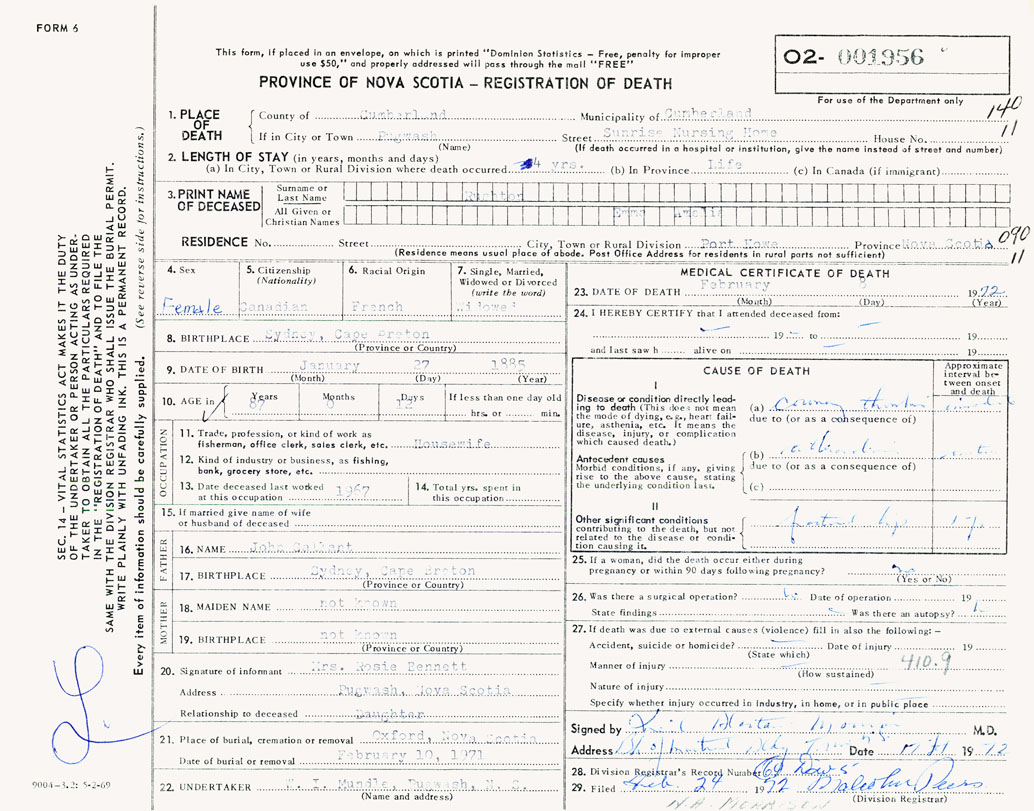 FORM 6
This form, if placed in an envelope, on which is printed "Dominion Statistics – Free, penalty for improper
use $50," and properly addressed will pass through the mail "FREE"
PROVINCE OF NOVA SCOTIA – REGISTRATION OF DEATH
O2- 001956
For use of the Department only
140
11
1. PLACE OF DEATH
County of Cumberland Municipality of Cumberland
If in City or Town Pugwash Street Sunrise Nursing Home House No.
(Name) (If death occurred in a hospital or institution, give the name instead of street and number)
2. LENGTH OF STAY (in years, months and days)
(a) In City, Town or Rural Division where death occurred 4 yrs. (b) In Province Life (c) In Canada (if immigrant)
3. PRINT NAME OF DECEASED
Surname or Last Name
All Given or Christian Names Emma Amelia
RESIDENCE No. Street City, Town or Rural Division Port Howe Province Nova Scotia
090
11
(Residence means usual place of abode. Post Office Address for residents in rural parts not sufficient)
4. Sex
Female
5. Citizenship
(Nationality)
Canadian
6. Racial Origin
French
7. Single, Married,
Widowed or Divorced
(write the word)
Widowed
8. BIRTHPLACE Sydney, Cape Breton
(Province or Country)
9. DATE OF BIRTH January 27 1885
(Month) (Day) (Year)
10. AGE in Years Months Days If less than one day old
87 0 12 hrs. or min.
OCCUPATION
11. Trade, profession, or kind of work as
fisherman, office clerk, sales clerk, etc. Housewife
12. Kind of industry or business, as fishing,
bank, grocery store, etc.
13. Date deceased last worked
at this occupation 1967
14. Total yrs. spent in
this occupation
15. If married give name of wife
or husband of deceased
FATHER
16. NAME John
17. BIRTHPLACE Sydney, Cape Breton
(Province or Country)
MOTHER
18. MAIDEN NAME not known
19. BIRTHPLACE not known
(Province or Country)
20. Signature of informant Mrs. Rosie Bennett
Address Pugwash, Nova Scotia
Relationship to deceased Daughter
21. Place of burial, cremation or removal Oxford, Nova Scotia
Date of burial or removal February 10, 1971
22. UNDERTAKER Mundle, Pugwash, N. S.
(Name and address)
MEDICAL CERTIFICATE OF DEATH
23. DATE OF DEATH February 8 1972
(Month) (Day) (Year)
24. I HEREBY CERTIFY that I attended deceased from:
19 to 19
and last saw h alive on 19
CAUSE OF DEATH
Approximate
interval be-
tween onset
and death
I
Disease or condition directly lead-
ing to death (This does not mean
the mode of dying, e.g., heart fail-
ure, asthenia, etc. It means the
disease, injury, or complication
which caused death.)
(a)
due to (or as a consequence of)
Antecedent causes
Morbid conditions, if any, giving
rise to the above cause, stating
the underlying condition last.
(b)
due to (or as a consequence of)
(c)
II
Other significant conditions
contributing to the death, but not
related to the disease or condi-
tion causing it.
25. If a woman, did the death occur either during
pregnancy or within 90 days following pregnancy? no
(Yes or No)
26. Was there a surgical operation? Date of operation 19
State findings Was there an autopsy?
27. If death was due to external causes (violence) fill in also the following: –
Accident, suicide or homicide? Date of injury 19
(State which)
Manner of injury 410.9
(How sustained)
Nature of injury
Specify whether injury occurred in industry, in home, or in public place
Signed by M.D.
Address Date 1972
28. Division Registrar's Record Number
29. Filed Feb. 24 1972 Malcolm
(Division Registrar)
N.A. MORRISON
SEC. 14 – VITAL STATISTICS ACT MAKES IT THE DUTY
OF THE UNDERTAKER OR PERSON ACTING AS UNDER-
TAKER TO OBTAIN ALL THE PARTICULARS REQUIRED
IN THE "REGISTRATION OF DEATH" AND TO FILE THE
SAME WITH THE DIVISION REGISTRAR WHO SHALL ISSUE THE BURIAL PERMIT.
WRITE PLAINLY WITH UNFADING INK. THIS IS A PERMANENT RECORD.
Every item of information should be carefully supplied. (See reverse side for instructions.)
9004-3.2: 5-2-69